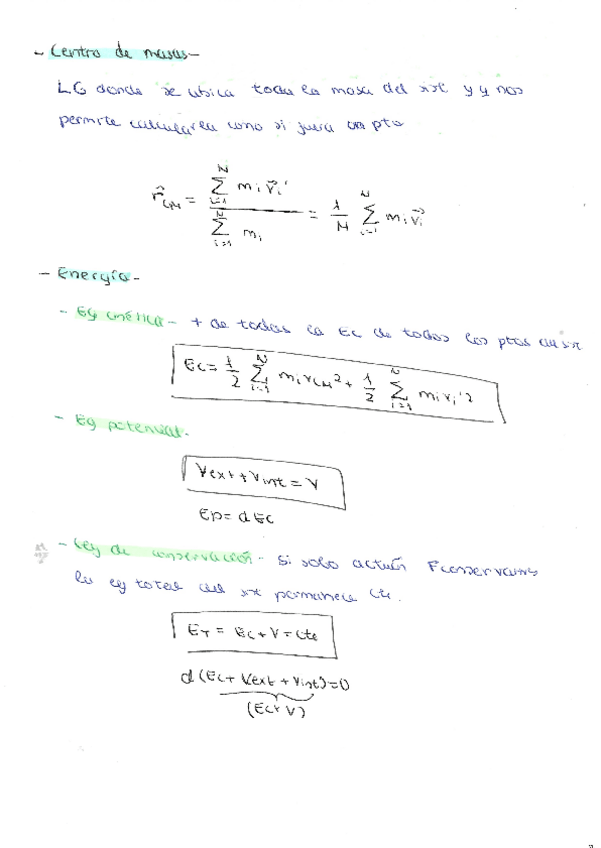 - Centro de masas-
LG donde se ubica toda la masa del sxt y y nos
permite calcularla como si fuera un pto
r⃗CM = \frac{\sum_{i=1}^{N} m_i \vec{r}_i'}{\sum_{i=1}^{N} m_i} = \frac{1}{M} \sum_{i=1}^{N} m_i \vec{r}_i
- Energía -
- Eg cinética - + de todas la Ec de todos los ptos del sxt
Ec = \frac{1}{2} \sum_{i=1}^{N} m_i v_{CM}^2 + \frac{1}{2} \sum_{i=1}^{N} m_i v_i'^2
- Eg potencial -
Vext + Vint = V
Ep = d Ec
- Ley de conservación - Si solo actúan Fconservativas
la eg total del sxt permanece cte.
E_T = Ec + V = cte
d (Ec + Vext + Vint) = 0
(Ec + V)